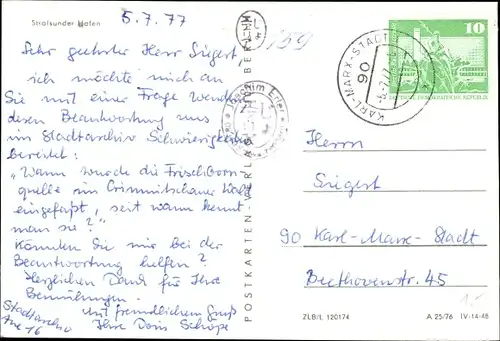 Stralsunder Hafen
5.7.77
159
Sehr geehrter Herr Siegert
ich möchte mich an
Sie mit einer Frage wenden
deren Beantwortung uns
im Stadtarchiv Schwierigkeiten
bereitet:
"Wann wurde die Frischborn-
quelle im Crimmitschauer Wald
eingefaßt, seit wann kennt
man sie?"
Können Sie mir bei der
Beantwortung helfen?
Herzlichen Dank für Ihre
Bemühungen.
Mit freundlichem Gruß
Ihre Doris Schöpe
Stadtarchiv
16
POSTKARTEN-VERLAG BERLIN
Joachim
10
DEUTSCHE DEMOKRATISCHE REPUBLIK
KARL-MARX-STADT
90
Herrn
Siegert
90 Karl-Marx-Stadt
Beethovenstr. 45
ZLB/L 120174
A 25/76 IV-14-48